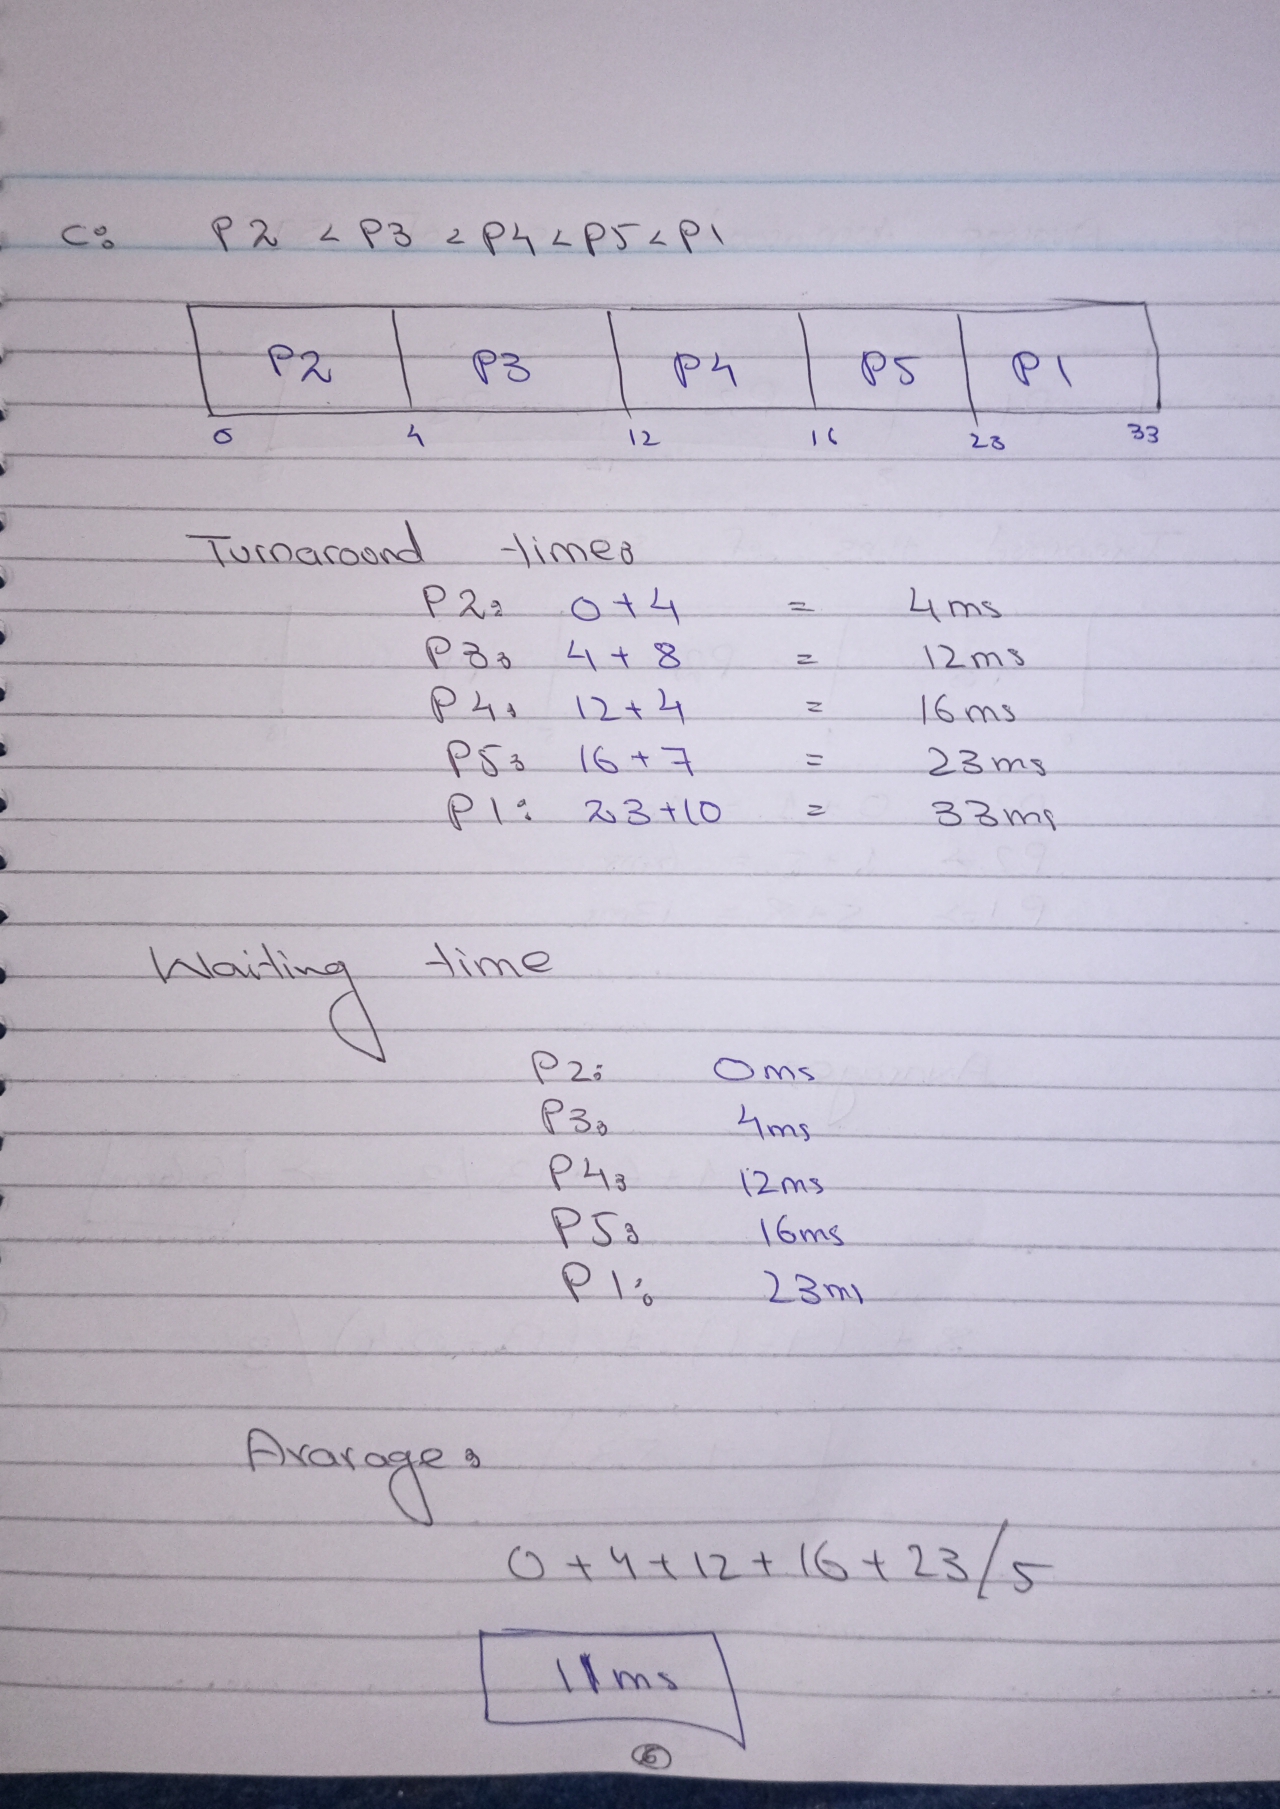 C: P2 < P3 < P4 < P5 < P1
P2 P3 P4 P5 P1
0 4 12 16 23 33
Turnaround time:
P2: 0+4 = 4ms
P3: 4+8 = 12ms
P4: 12+4 = 16ms
P5: 16+7 = 23ms
P1: 23+10 = 33ms
Waiting time
P2: 0ms
P3: 4ms
P4: 12ms
P5: 16ms
P1: 23ms
Avarage:
0+4+12+16+23/5
11ms
6